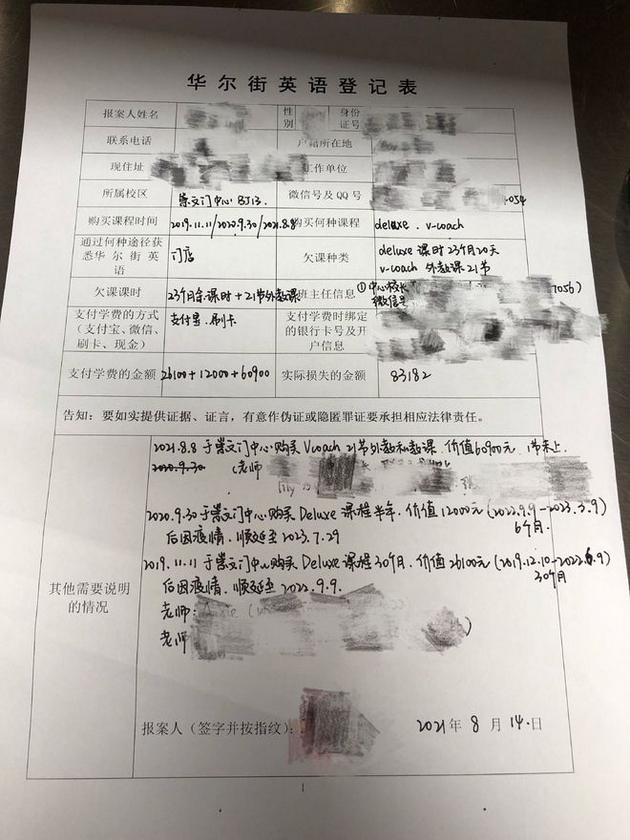 华尔街英语登记表
报案人姓名 性别 身份证号
联系电话 户籍所在地
现住址 工作单位
所属校区 崇文门中心 BJ13. 微信号及QQ号 054
购买课程时间 2019.11.11/2020.9.30/2021.8.8 购买何种课程 deluxe. v-coach
通过何种途径获悉华尔街英语 门店 欠课种类 deluxe 课时 23个月20天
v-coach 外教课 21节
欠课课时 23个月余课时+21节外教课 班主任信息 ①中心校长 7056)
微信号
支付学费的方式(支付宝、微信、刷卡、现金) 支付宝.刷卡 支付学费时绑定的银行卡号及开户信息
支付学费的金额 26100+12000+60900 实际损失的金额 83182
告知:要如实提供证据、证言,有意作伪证或隐匿罪证要承担相应法律责任。
其他需要说明的情况
2021.8.8 于崇文门中心购买 Vcoach 21节外教私教课.价值60900元. 1节未上.
2020.9.30 (老师
2020.9.30于崇文门中心购买 Deluxe 课程半年.价值12000元(2022.9.9-2023.3.9)
6个月.
后因疫情.顺延至2023.7.29
2019.11.11于崇文门中心购买Deluxe 课程30个月.价值26100元(2019.12.10-2022.6.9)
30个月
后因疫情.顺延至2022.9.9.
老师:
老师
报案人(签字并按指纹): 2021年 8 月 14.日
1